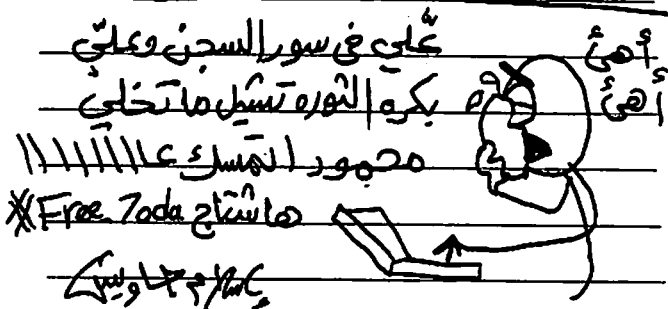 أهئ علّي في سور السجن وعلّي
أهئ بكره الثوره تشيل ما تخلي
محمود اتمسك عاااااااا
هاشتاج #Free 7oda
إسلام جاويش